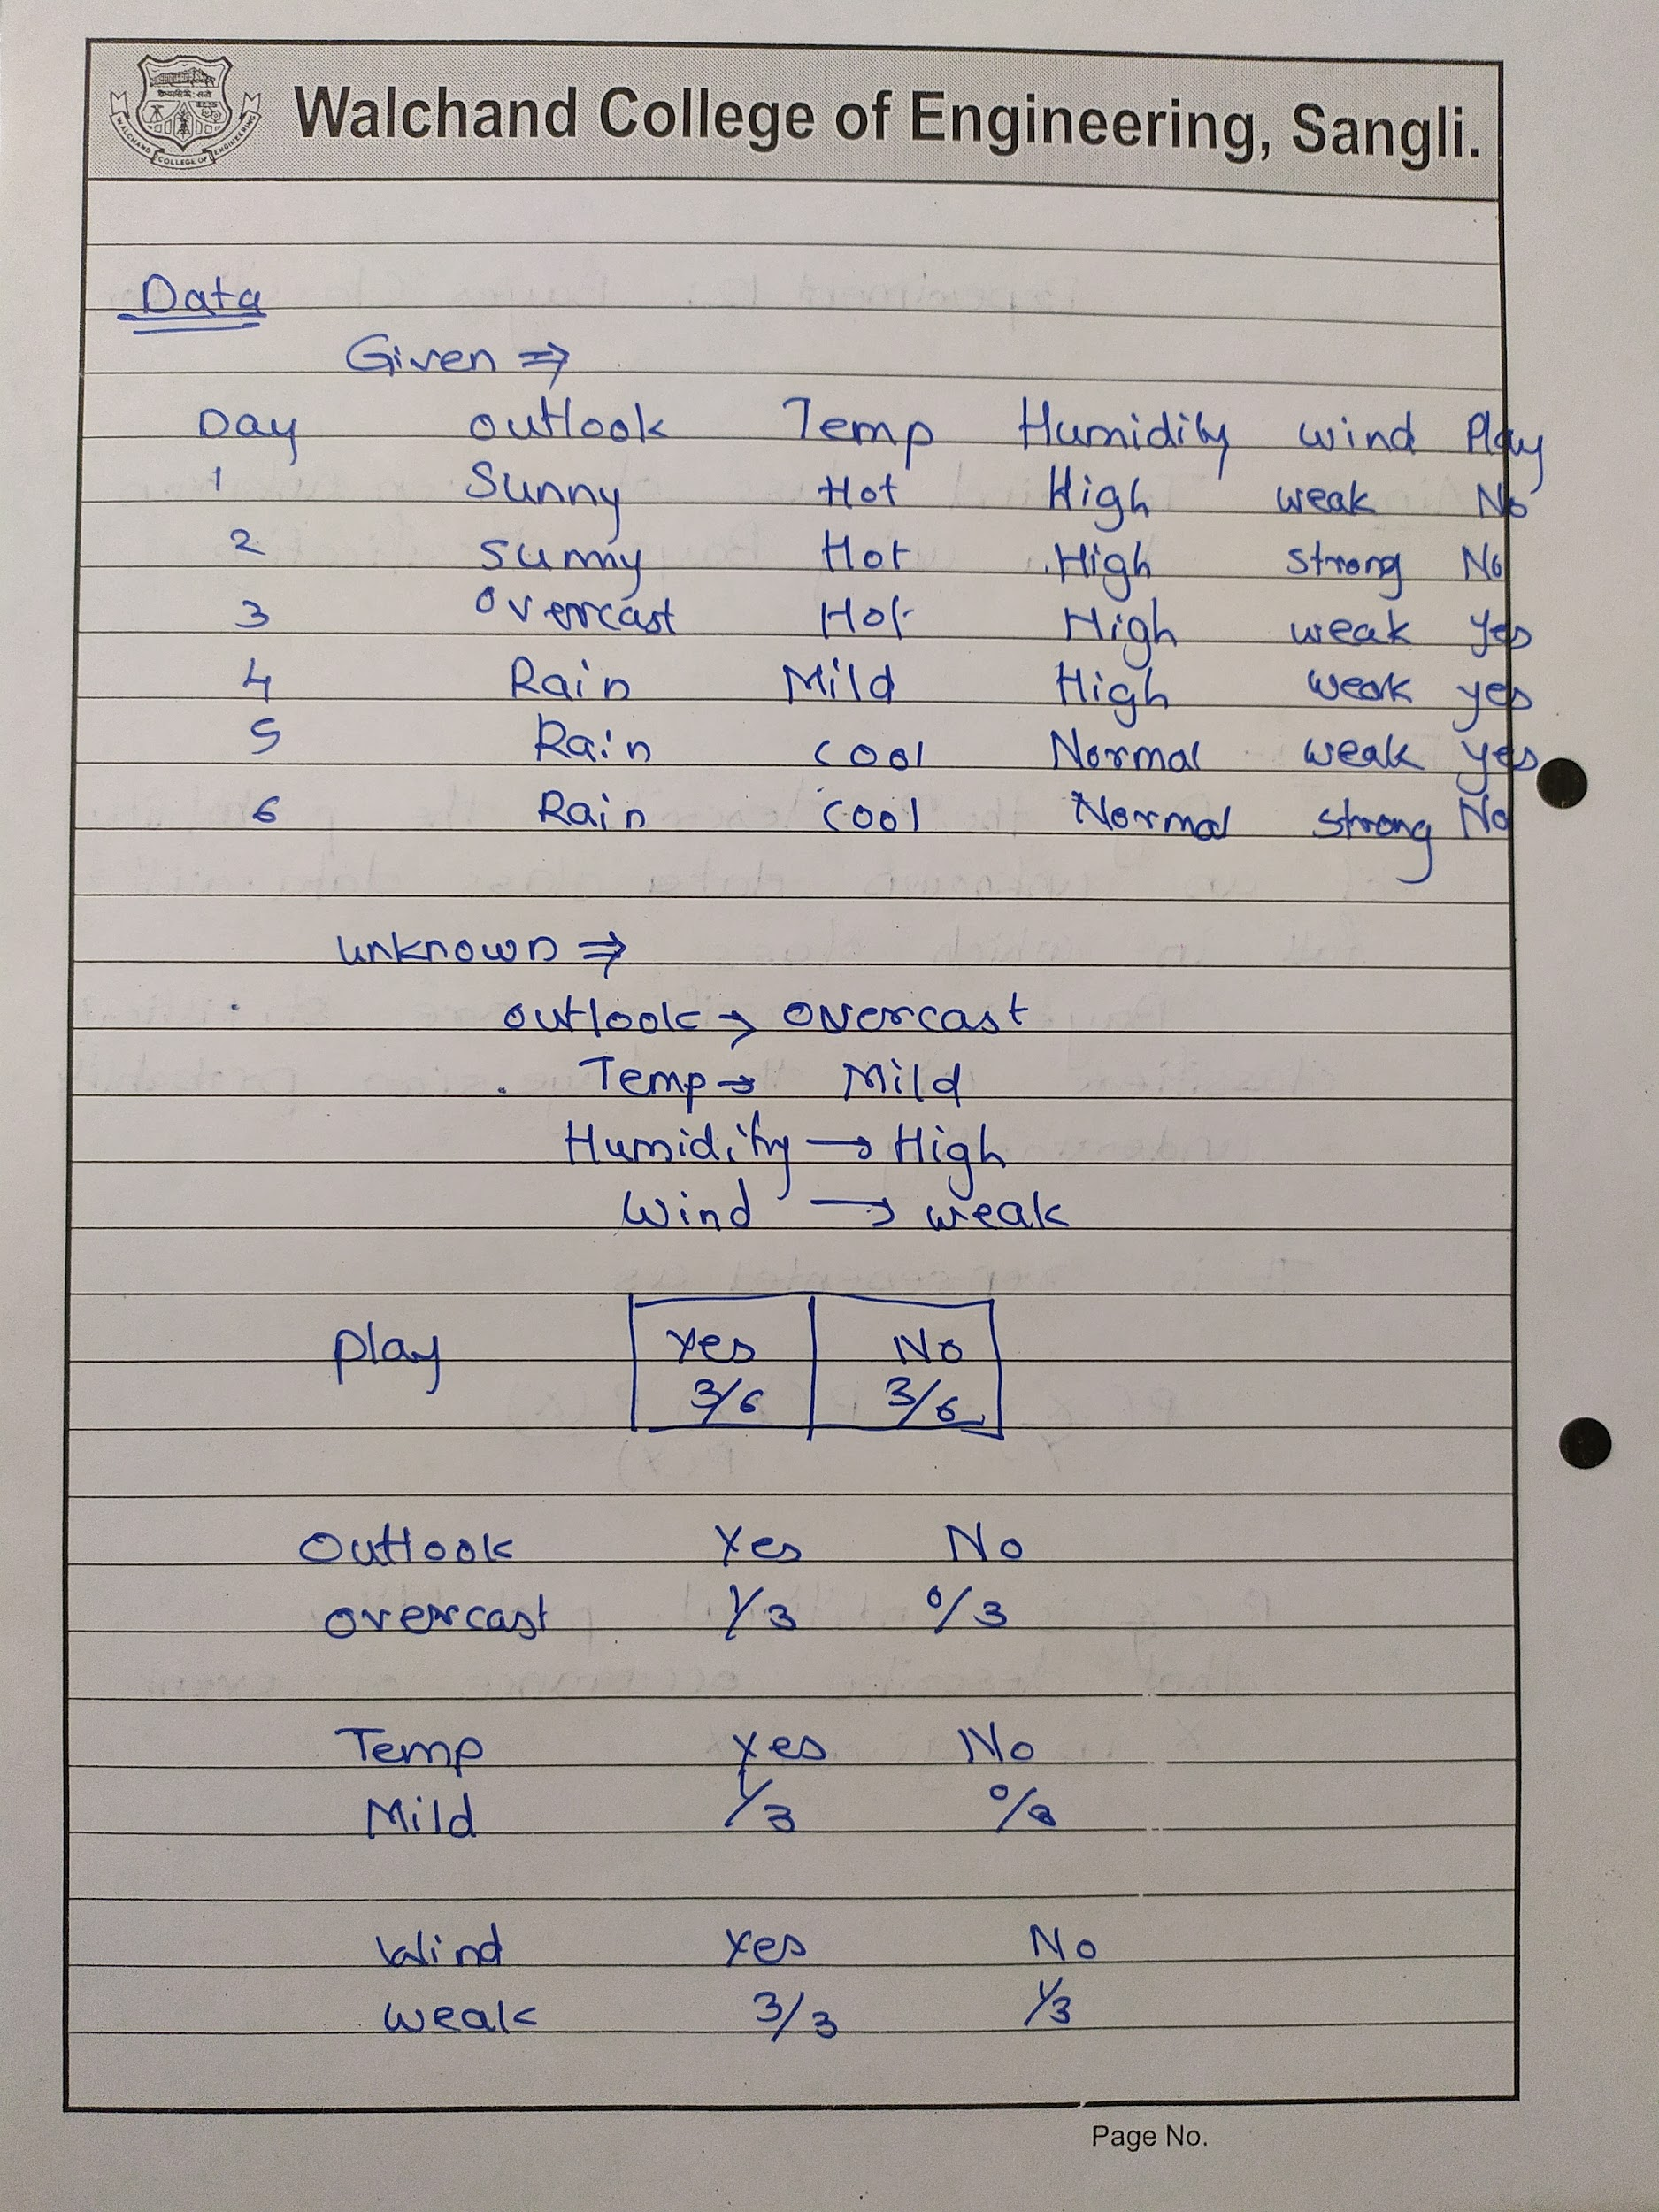 Walchand College of Engineering, Sangli.
WALCHAND COLLEGE OF ENGINEERING
Data
Given ⇒
Day outlook Temp Humidity wind Play
1 Sunny Hot High weak No
2 Sunny Hot High strong No
3 Overcast Hot High weak Yes
4 Rain Mild High weak yes
5 Rain cool Normal weak yes
6 Rain cool Normal strong No
unknown ⇒
outlook → overcast
Temp → Mild
Humidity → High
Wind → weak
play Yes No
3/6 3/6
Outlook Yes No
overcast 1/3 0/3
Temp Yes No
Mild 1/3 0/3
Wind Yes No
weak 3/3 1/3
Page No.